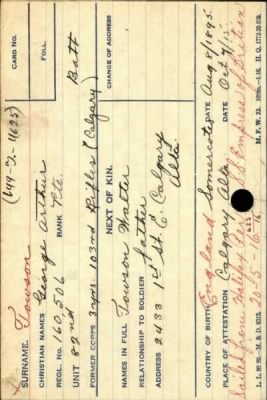 (649-T-11625)
CARD NO.
FOLIO.
SURNAME. Towson
CHRISTIAN NAMES George Arthur
REGL. NO. 160,506 RANK Pte
UNIT 82nd Batt
FORMER CORPS 3 yrs. 103rd Rifles (Calgary)
CHANGE OF ADDRESS
NEXT OF KIN.
NAMES IN FULL Towson Walter
RELATIONSHIP TO SOLDIER Father
ADDRESS 2433 1st St. E. Calgary
Alta.
COUNTRY OF BIRTH England Somercotes DATE Aug 8/1895
PLACE OF ATTESTATION Calgary Alta DATE Oct 7/15
Sailed from Halfax Per S.S. Empress of Britain
20-5-16
L. L. M. & D. M. F. W. 22. H. Q.